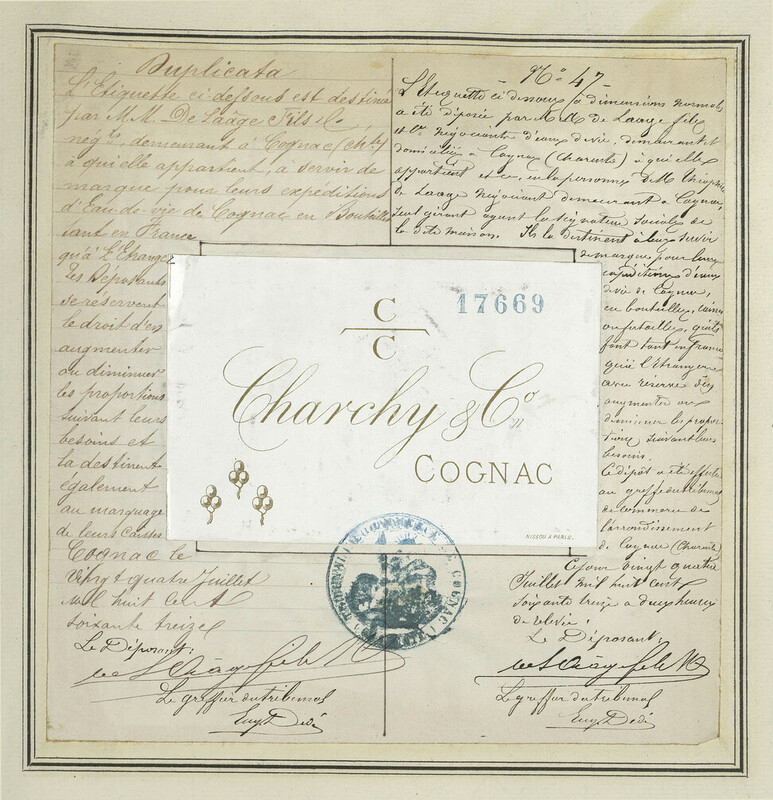 Duplicata
L'Etiquette ci dessous est destinée
par M.M. De Laage Fils & Cie
négts, demeurant à Cognac (Chte)
à qui elle appartient, à servir de
marque pour leurs expéditions
d'Eau-de-vie de Cognac en Bouteilles
tant en France
qu'à l'Etranger
Les Déposants
se réservent
le droit d'en
augmenter
ou diminuer
les proportions
suivant leurs
besoins et
la destinent
également
au marquage
de leurs Caisses
Cognac le
Vingt quatre Juillet
mil huit cent
soixante treize
Le Déposant:
de Laage fils &
Le greffier du tribunal
Eug Dedé
- No 47 -
L'Etiquette ci dessous à dimensions normales
a été déposée par M.M. de Laage fils
et Cie négociants d'eaux de vie, demeurant et
domiciliés à Cognac (Charente) à qui elle
appartient et ce, en la personne de M. Théophile
de Laage négociant demeurant à Cognac,
seul gérant ayant la signature sociale de
la dite maison. Ils la destinent à leur servir
de marque pour leurs
expéditions d'eaux
de vie de Cognac,
en bouteilles, caisses
ou futailles, qu'ils
font tant en france
qu'à l'Etranger
avec réserve d'en
augmenter ou
diminuer les propor-
tions suivant leurs
besoins.
Ce dépôt a été effectué
au greffe du tribunal
de commerce de
l'arrondissement
de Cognac (Charente)
Ce jour vingt quatre
Juillet mil huit cent
soixante treize à deux heures
de relevée.
Le Déposant:
de Laage fils &
Le greffier du tribunal
Eug Dedé
C
C
17669
Charchy & Co
COGNAC
NISSOU A PARIS.
COMMERCE DE COGNAC